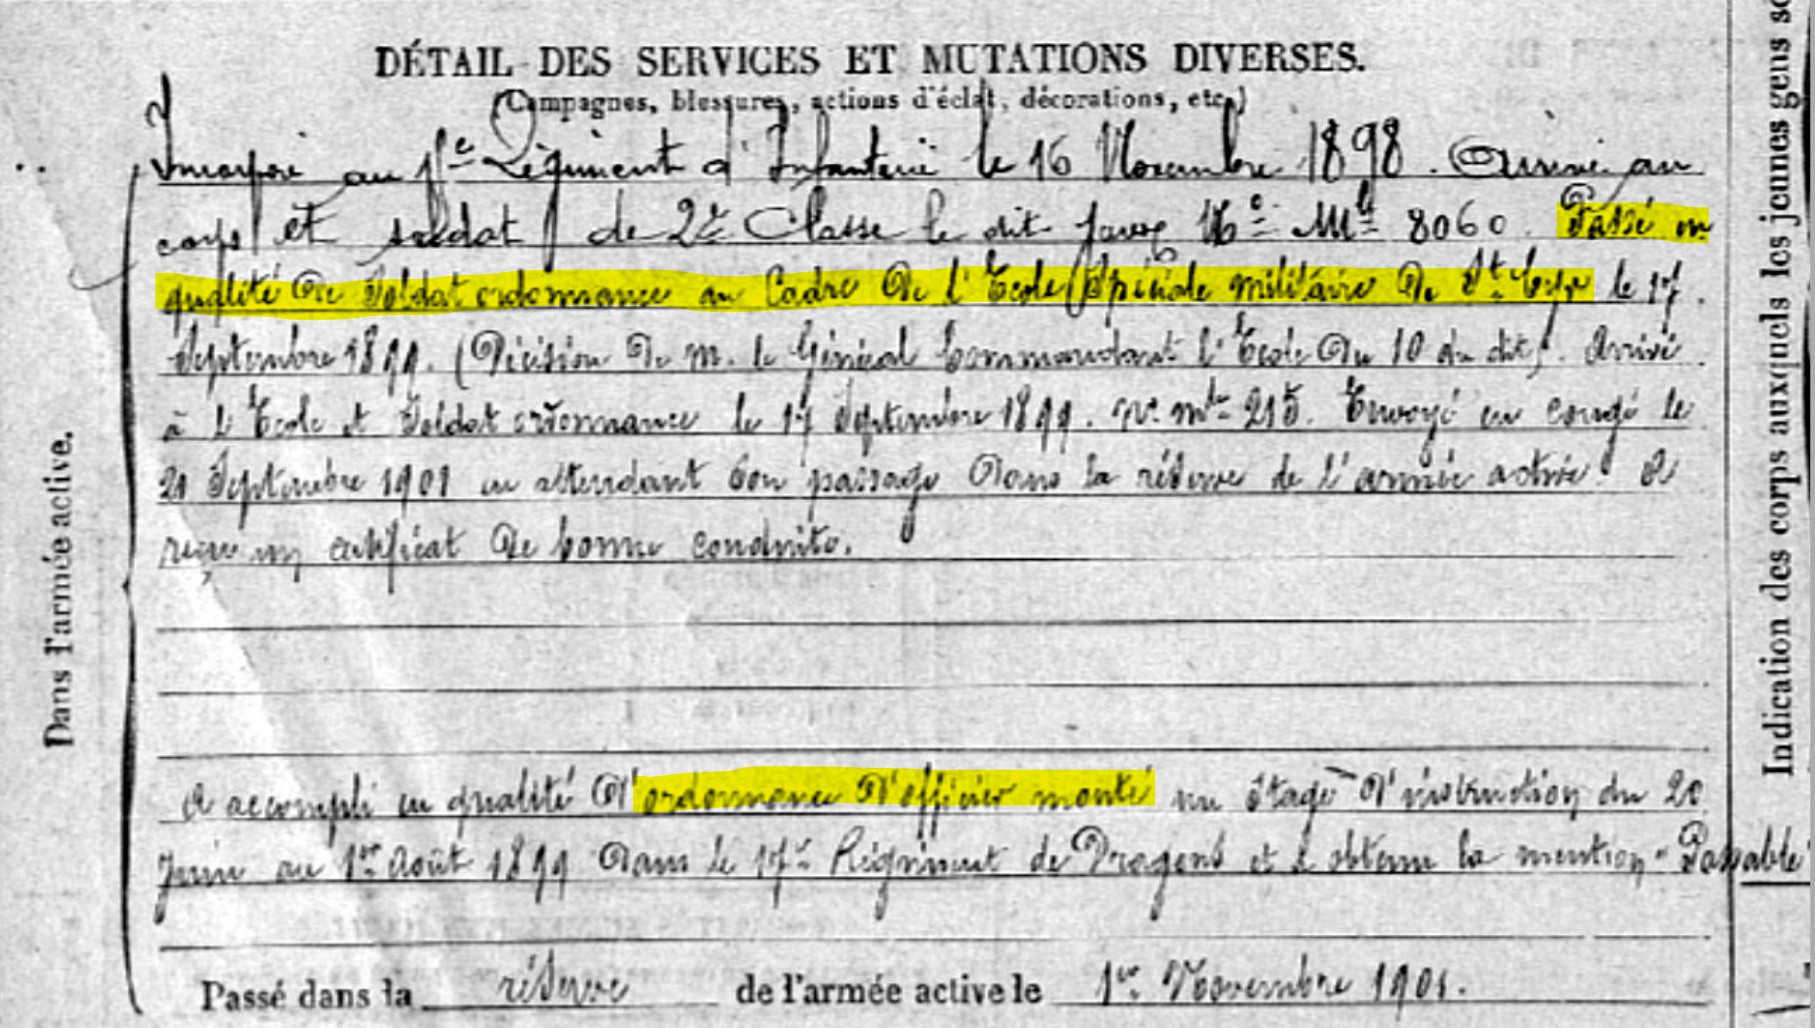 DÉTAIL DES SERVICES ET MUTATIONS DIVERSES.
(Campagnes, blessures, actions d'éclat, décorations, etc.)
Incorporé au Régiment d'Infanterie le 16 Novembre 1898. Arrivé au
corps et soldat de 2e Classe le dit jour No Mle 8060. Passé en
qualité de Soldat ordonnance au Cadre De l'Ecole Spéciale militaire De St Cyr le 17
Septembre 1899. (Décision De M. le Général Commandant l'Ecole Du 10 du dit). Arrivé
à l'Ecole et Soldat ordonnance le 17 Septembre 1899. No Mle 215. Envoyé en congé le
21 Septembre 1901 en attendant son passage Dans la réserve de l'armée active. A
reçu un certificat De bonne conduite.
A accompli en qualité D'ordonnance D'officier monté un stage D'instruction du 20
Juin au 1er Août 1899 Dans le 17e Régiment de Dragons et a obtenu la mention "Passable
Passé dans la réserve de l'armée active le 1er Novembre 1901.
Dans l'armée active.
Indication des corps auxquels les jeunes gens so